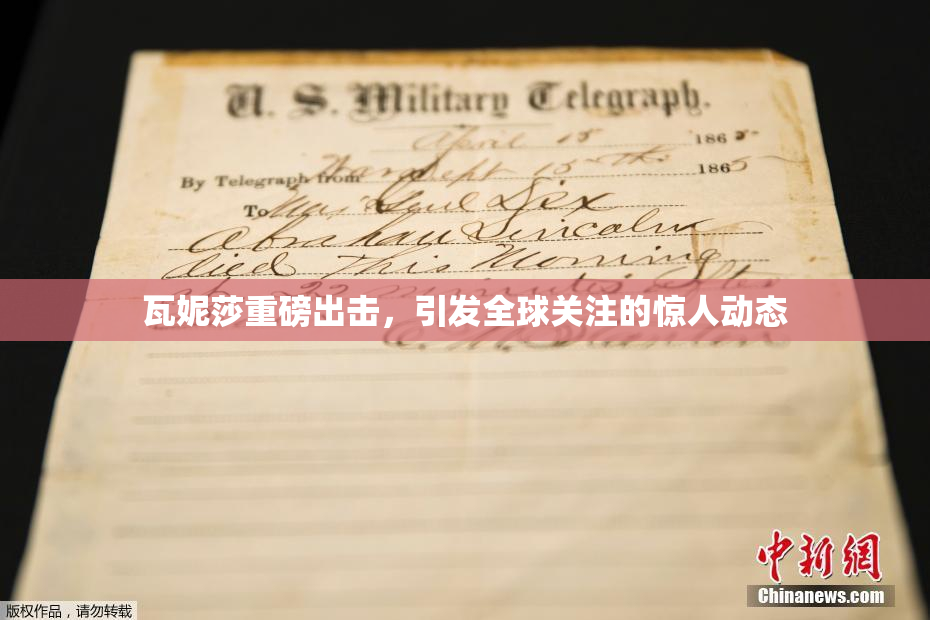 U. S. Military Telegraph.
April 15 1865
By Telegraph from War Dept 15th 1865
To Maj Genl Dix
Abraham Lincoln
died This Morning
at 22 minutes after
瓦妮莎重磅出击，引发全球关注的惊人动态
E. M. Stanton
中新网
Chinanews.com
版权作品，请勿转载